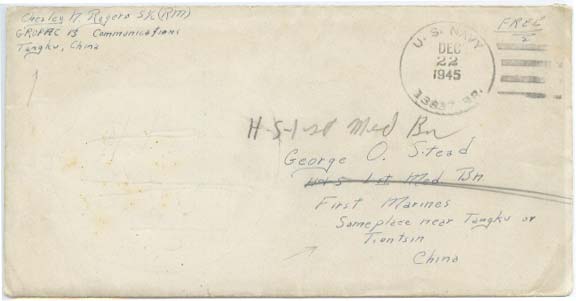 Chesley N Rogers S1/c (RM)
GROPAC 13 Communications
Tangku, China
FREE
U. S. NAVY
DEC
22
1945
BR.
H-S-1-st Med Bn
George O. Stead
H+S 1st Med. Bn
First Marines
Someplace near Tangku or
Tientsin
China